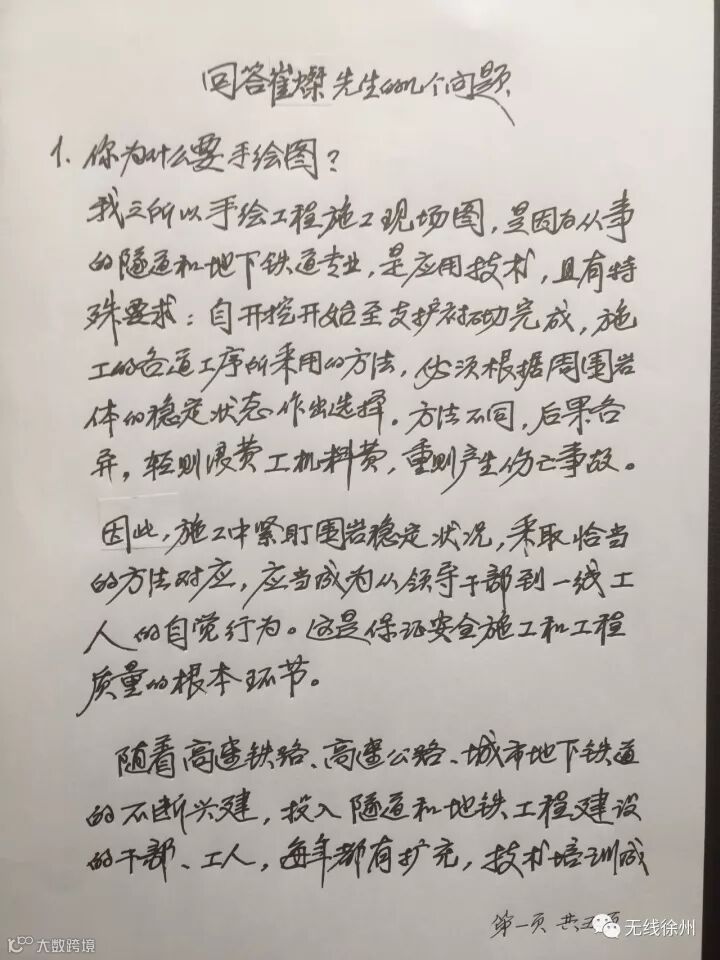 回答崔燦先生的几个问题
1. 你为什么要手绘图?
我之所以手绘工程施工现场图,是因为从事
的隧道和地下铁道专业,是应用技术,且有特
殊要求:自开挖开始至支护衬砌完成,施
工的各道工序所采用的方法,必须根据周围岩
体的稳定状态作出选择。方法不同,后果各
异,轻则浪费工机料费,重则产生伤亡事故。
因此,施工中紧盯围岩稳定状况,采取恰当
的方法对应,应当成为从领导干部到一线工
人的自觉行为。这是保证安全施工和工程
质量的根本环节。
随着高速铁路、高速公路、城市地下铁道
的不断兴建,投入隧道和地铁工程建设
的干部、工人,每年都有扩充,技术培训成
第一页 共五页
无线徐州
大数跨境